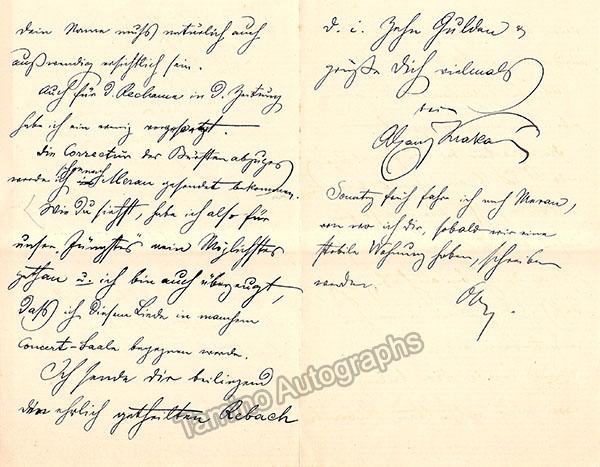 dein Name muß natürlich auch
auswendig ersichtlich sein.
Auch für d. Reclame in d. Zeitung
habe ich ein wenig vorgesorgt.
die Correctur des Bürstenabzuges
werde ich nach Meran gesendet bekommen.
Wie Du siehst, habe ich also für
unser Jüngstes mein Möglichstes
gethan u. ich bin auch überzeugt,
daß ich diesem Liede in manchem
Concert-Saale begegnen werde.
Ich sende dir beiliegend
den ehrlich getheilten Rebach
d. i. Zehn Gulden u
grüße Dich vielmals
dein
Sonntag früh fahre ich nach Meran,
von wo ich dir, sobald wir eine
stabile Wohnung haben, schreiben
werde.
Tamino Autographs